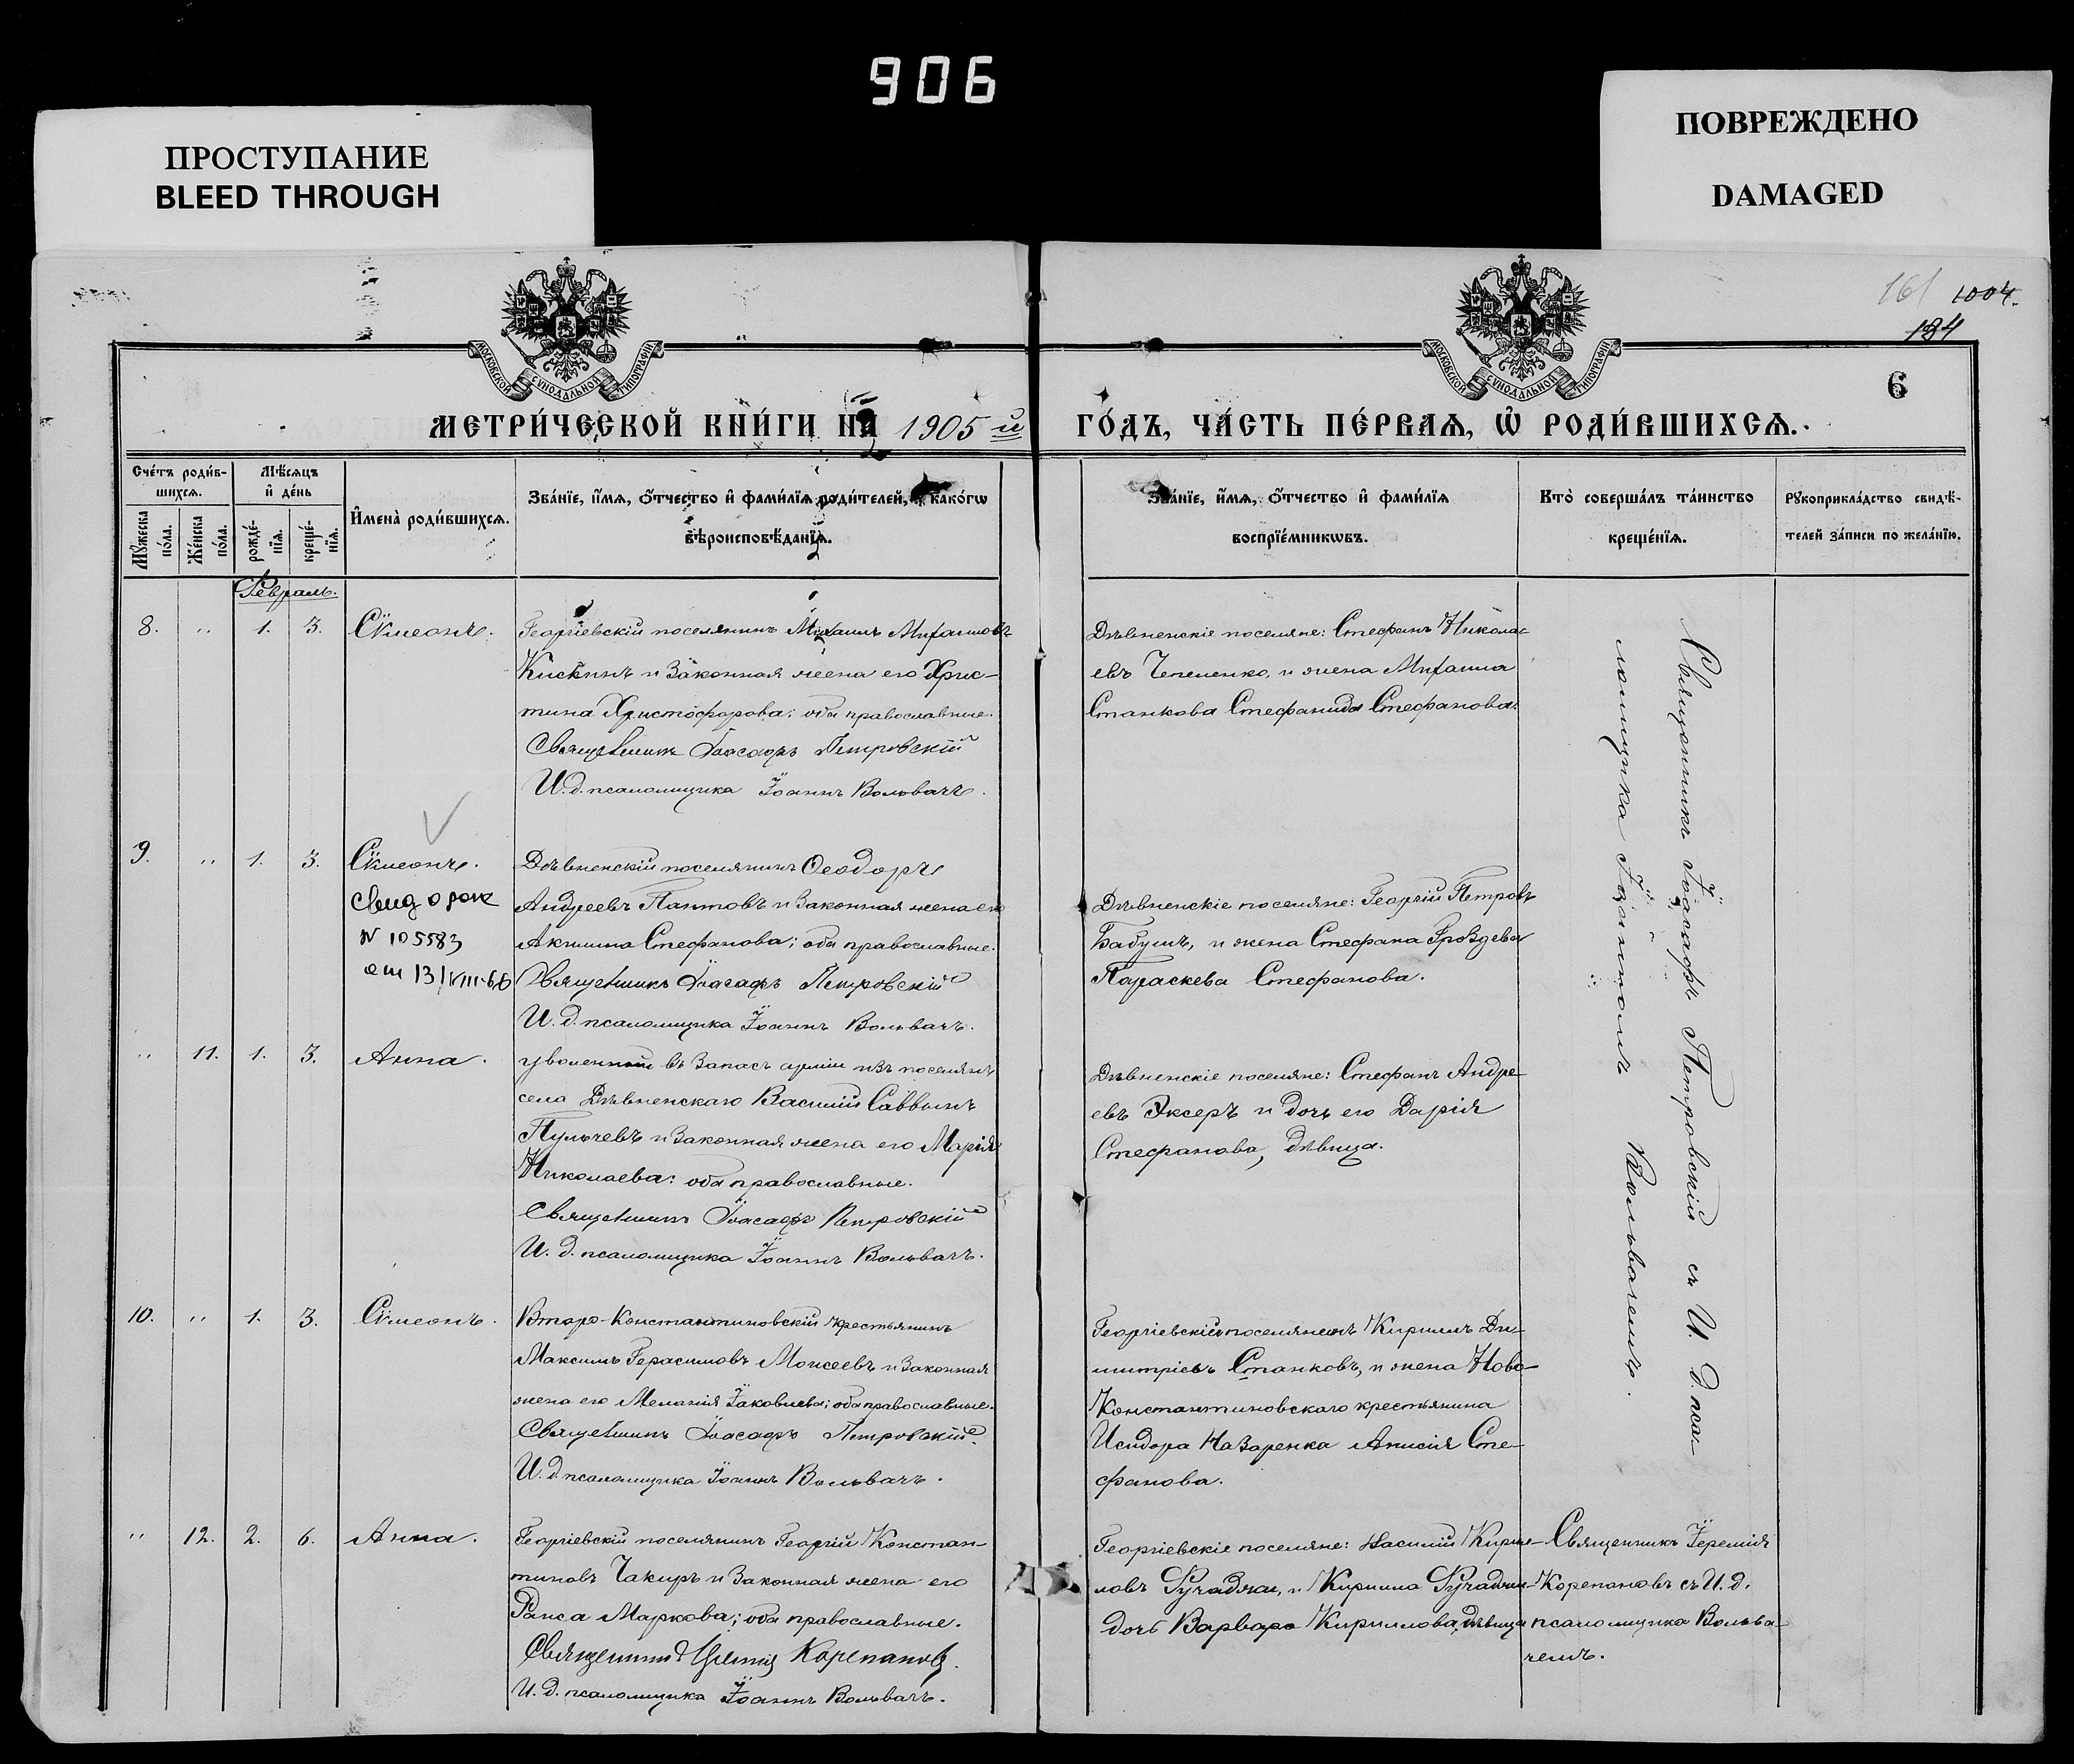 906
ПРОСТУПАНИЕ
BLEED THROUGH
ПОВРЕЖДЕНО
DAMAGED
161 1004.
134
МОСКОВСКОЙ СѴНОДАЛЬНОЙ ТИПОГРАФІИ
МОСКОВСКОЙ СѴНОДАЛЬНОЙ ТИПОГРАФІИ
6
МЕТРИ́ЧЕСКОЙ КНИ́ГИ НА 1905 й ГО́ДЪ, ЧА́СТЬ ПЕ́РВАѦ, Ѡ҆ РОДИ́ВШИХСѦ.
Сче́тъ роди́в-
шихсѧ.
Мꙋ́жеска по́ла.
Же́нска по́ла.
Мѣ́сѧцъ
и҆ де́нь
рожде́-
нїѧ.
креще́-
нїѧ.
И҆мена̀ роди́вшихсѧ.
Зва́нїе, и҆́мѧ, о҆́тчество и҆ фами́лїѧ роди́телей, и҆ како́гѡ
вѣроисповѣ́данїѧ.
Зва́нїе, и҆́мѧ, о҆́тчество и҆ фами́лїѧ
воспрїе́мникѡвъ.
Кто̀ соверша́лъ та́инство
креще́нїѧ.
Рꙋкоприкла́дство свидѣ́-
телей за́писи по жела́нїю.
Февраль.
8. „ 1. 3. Сѷмеонъ.
Георгіевскій поселянинъ Михаилъ Михаиловъ
Кискинъ и законная жена его Хрис-
тина Христофорова; оба православные.
Священникъ Іоасафъ Петровскій
И. д. псаломщика Іоаннъ Вольвачъ.
Дѣвненскіе поселяне: Стефанъ Никола-
евъ Чепеленко, и жена Михаила
Станкова Стефанида Стефанова.
Священникъ Іоасафъ Петровскій съ И. д. пса-
ломщика Іоанномъ Вольвачемъ.
9. „ 1. 3. Сѷмеонъ.
свид о рож
N 105583
от 13/VIII-66
Дѣвненскій поселянинъ Ѳеодоръ
Андреевъ Пантовъ и законная жена его
Акилина Стефанова; оба православные.
Священникъ Іоасафъ Петровскій
И. д. псаломщика Іоаннъ Вольвачъ.
Дѣвненскіе поселяне: Георгій Петровъ
Бабушъ, и жена Стефана Гроздева
Параскева Стефанова.
„ 11. 1. 3. Анна.
уволенный въ запасъ арміи изъ поселянъ
села Дѣвненскаго Василій Саввинъ
Пульчевъ и законная жена его Марія
Николаева: оба православные.
Священникъ Іоасафъ Петровскій
И. д. псаломщика Іоаннъ Вольвачъ.
Дѣвненскіе поселяне: Стефанъ Андре-
евъ Эксеръ и дочь его Дарія
Стефанова, дѣвица.
10. „ 1. 3. Сѷмеонъ.
Второ-Константиновскій крестьянинъ
Максимъ Герасимовъ Моисеевъ и законная
жена его Меланія Іаковлева; оба православные.
Священникъ Іоасафъ Петровскій.
И. д. псаломщика Іоаннъ Вольвачъ.
Георгіевскій поселянинъ Кириллъ Ди-
митріевъ Станковъ, и жена Ново-
Константиновскаго крестьянина
Исидора Назаренка Анисія Сте-
фанова.
„ 12. 2. 6. Анна.
Георгіевскій поселянинъ Георгій Констан-
тиновъ Чакиръ и законная жена его
Раиса Маркова; оба православные.
Священникъ Іеремія Корепановъ.
И. д. псаломщика Іоаннъ Вольвачъ.
Георгіевскіе поселяне: Василій Кирил-
ловъ Гучаджи, и Кирилла Гучаджи
дочь Варвара Кириллова, дѣвица
Священникъ Іеремія
Корепановъ съ И. д.
псаломщика Вольва-
чемъ.